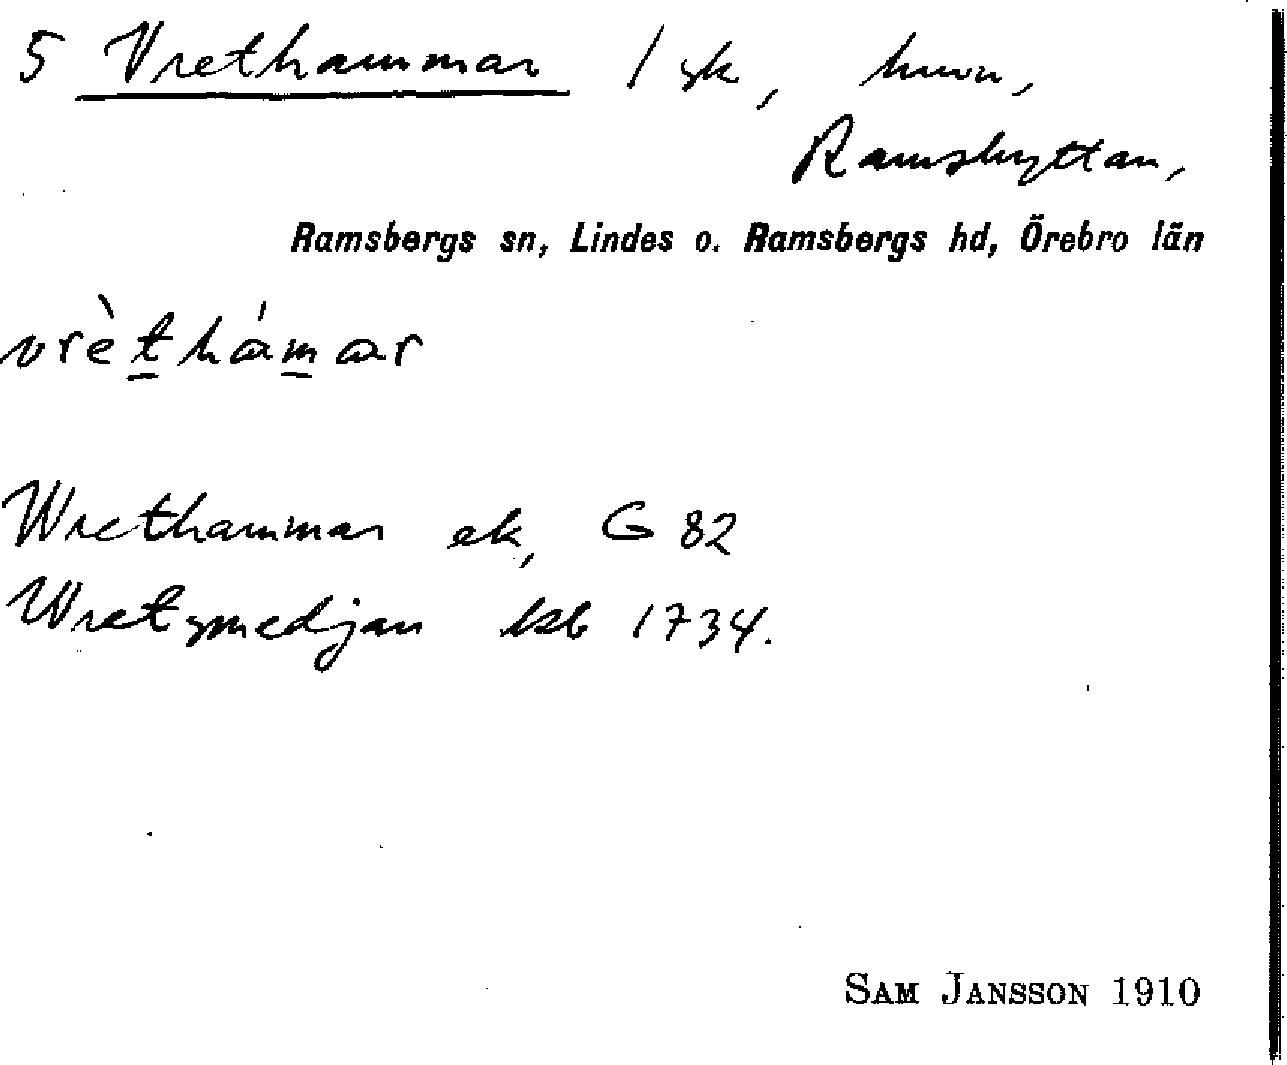 5 Vrethammar 1 gk, hmn,
Ramshyttan,
Ramsbergs sn, Lindes o. Ramsbergs hd, Örebro län
vrèthámar
Wrethammar ek, G 82
Wretsmedjan ksb 1734.
SAM JANSSON 1910